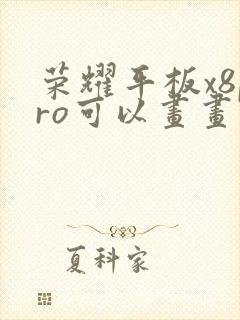 荣耀平板x8p
ro可以畫畫
夏科家